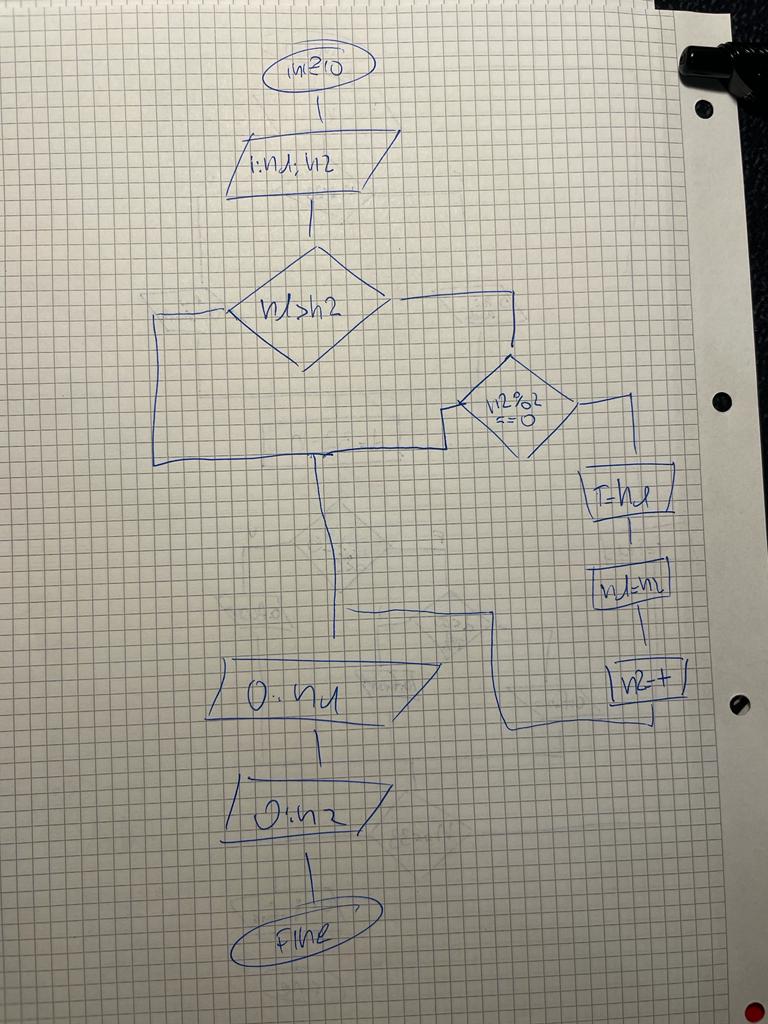 inizio
I:n1;n2
n1>n2
n2%2
==0
T=n1
n1=n2
n2=t
O:n1
O:n2
FINE